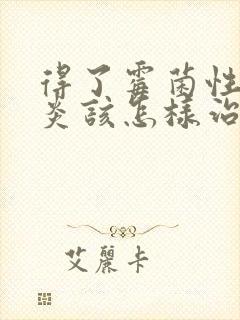 得了霉菌性
炎該怎樣治
艾麗卡